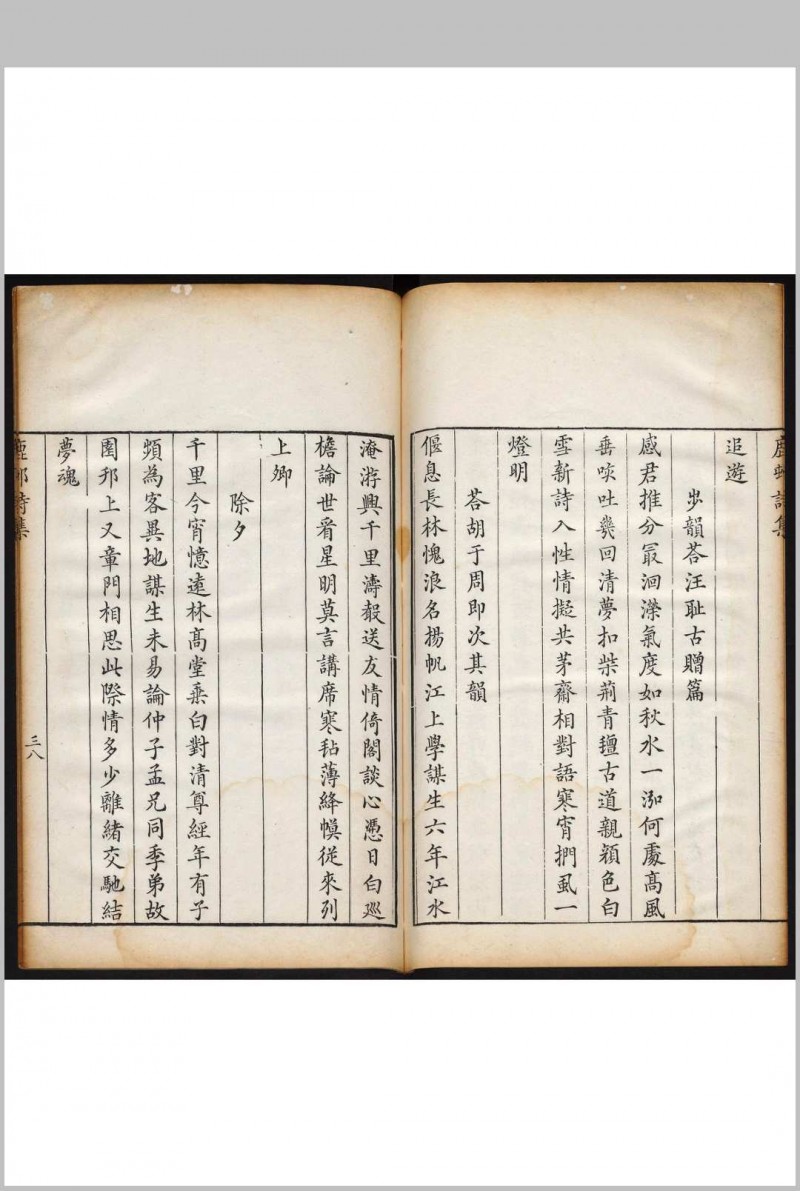 追遊
步韻荅汪耻古贈篇
感君推分㝡洄濚氣度如秋水一泓何處高風
垂唳吐㡬回清夢扣柴荊青氊古道親顏色白
雪新詩入性情擬共茅齋相對語寒宵捫虱一
燈明
荅胡于周即次其韻
偃息長林愧浪名揚帆江上學謀生六年江水
淹游興千里濤聲送友情倚閣談心憑日白巡
檐論世看星明莫言講席寒毡薄絳幙從來列
上卿
除夕
千里今宵憶遠林高堂垂白對清尊經年有子
頻為客異地謀生未易論仲子孟兄同季弟故
園邗上又章門相思此際情多少離緒交馳結
夢魂
三八